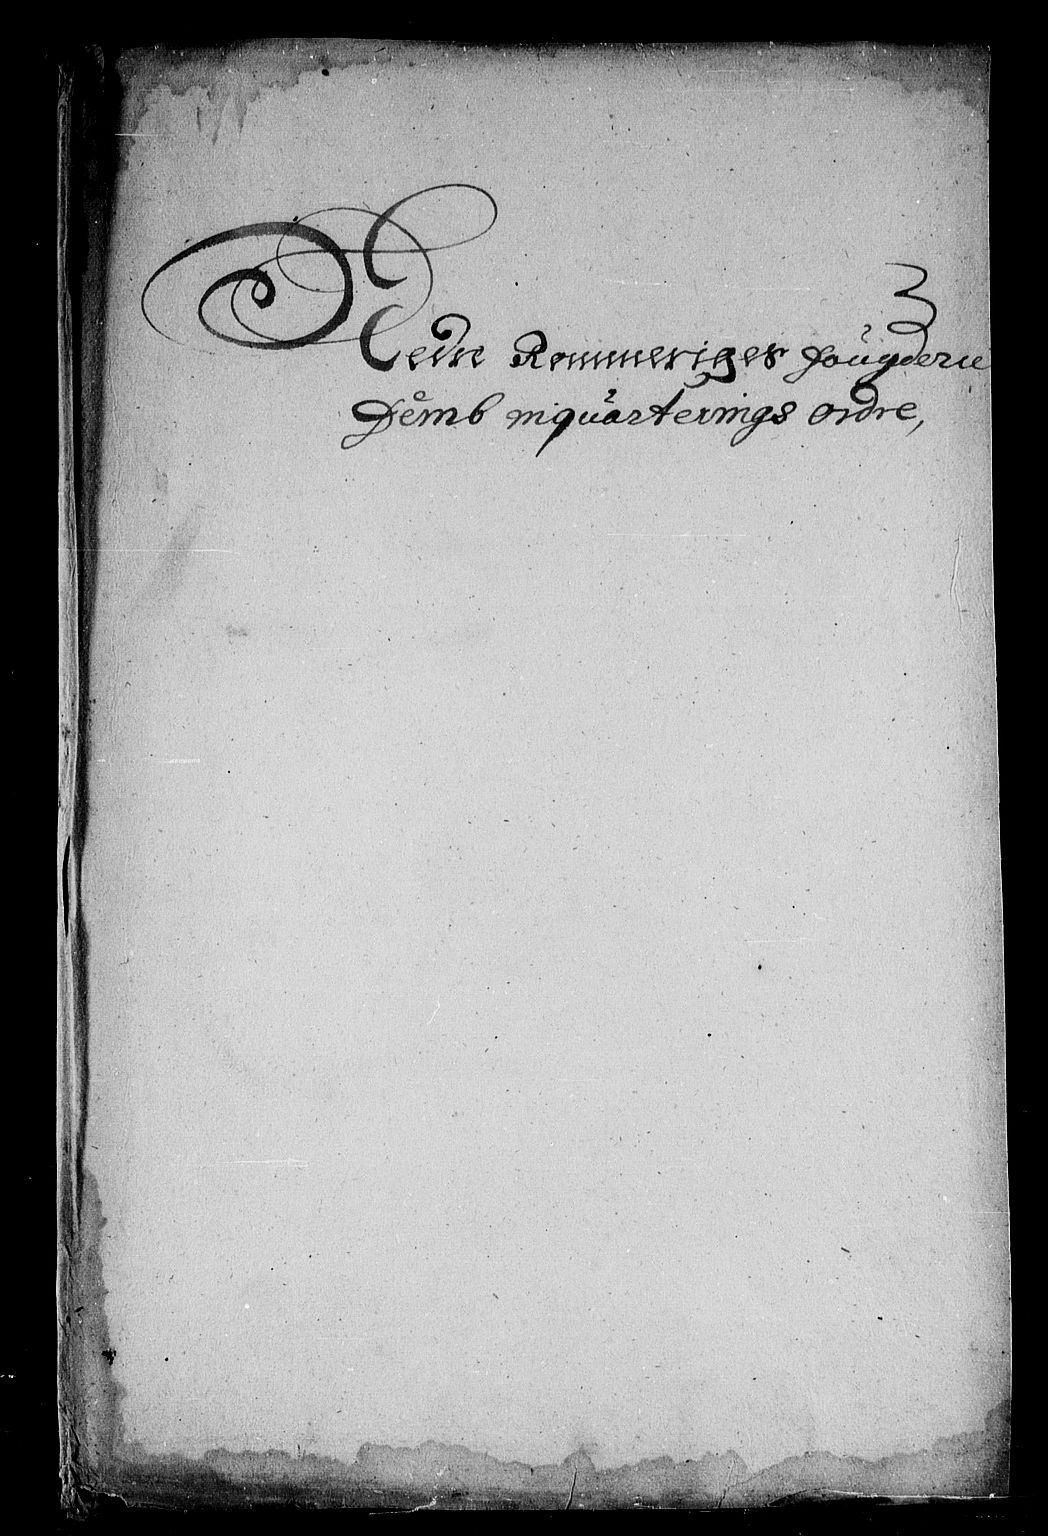 Nedre Rommeriges fougderie
Dend inquarterings ordre,